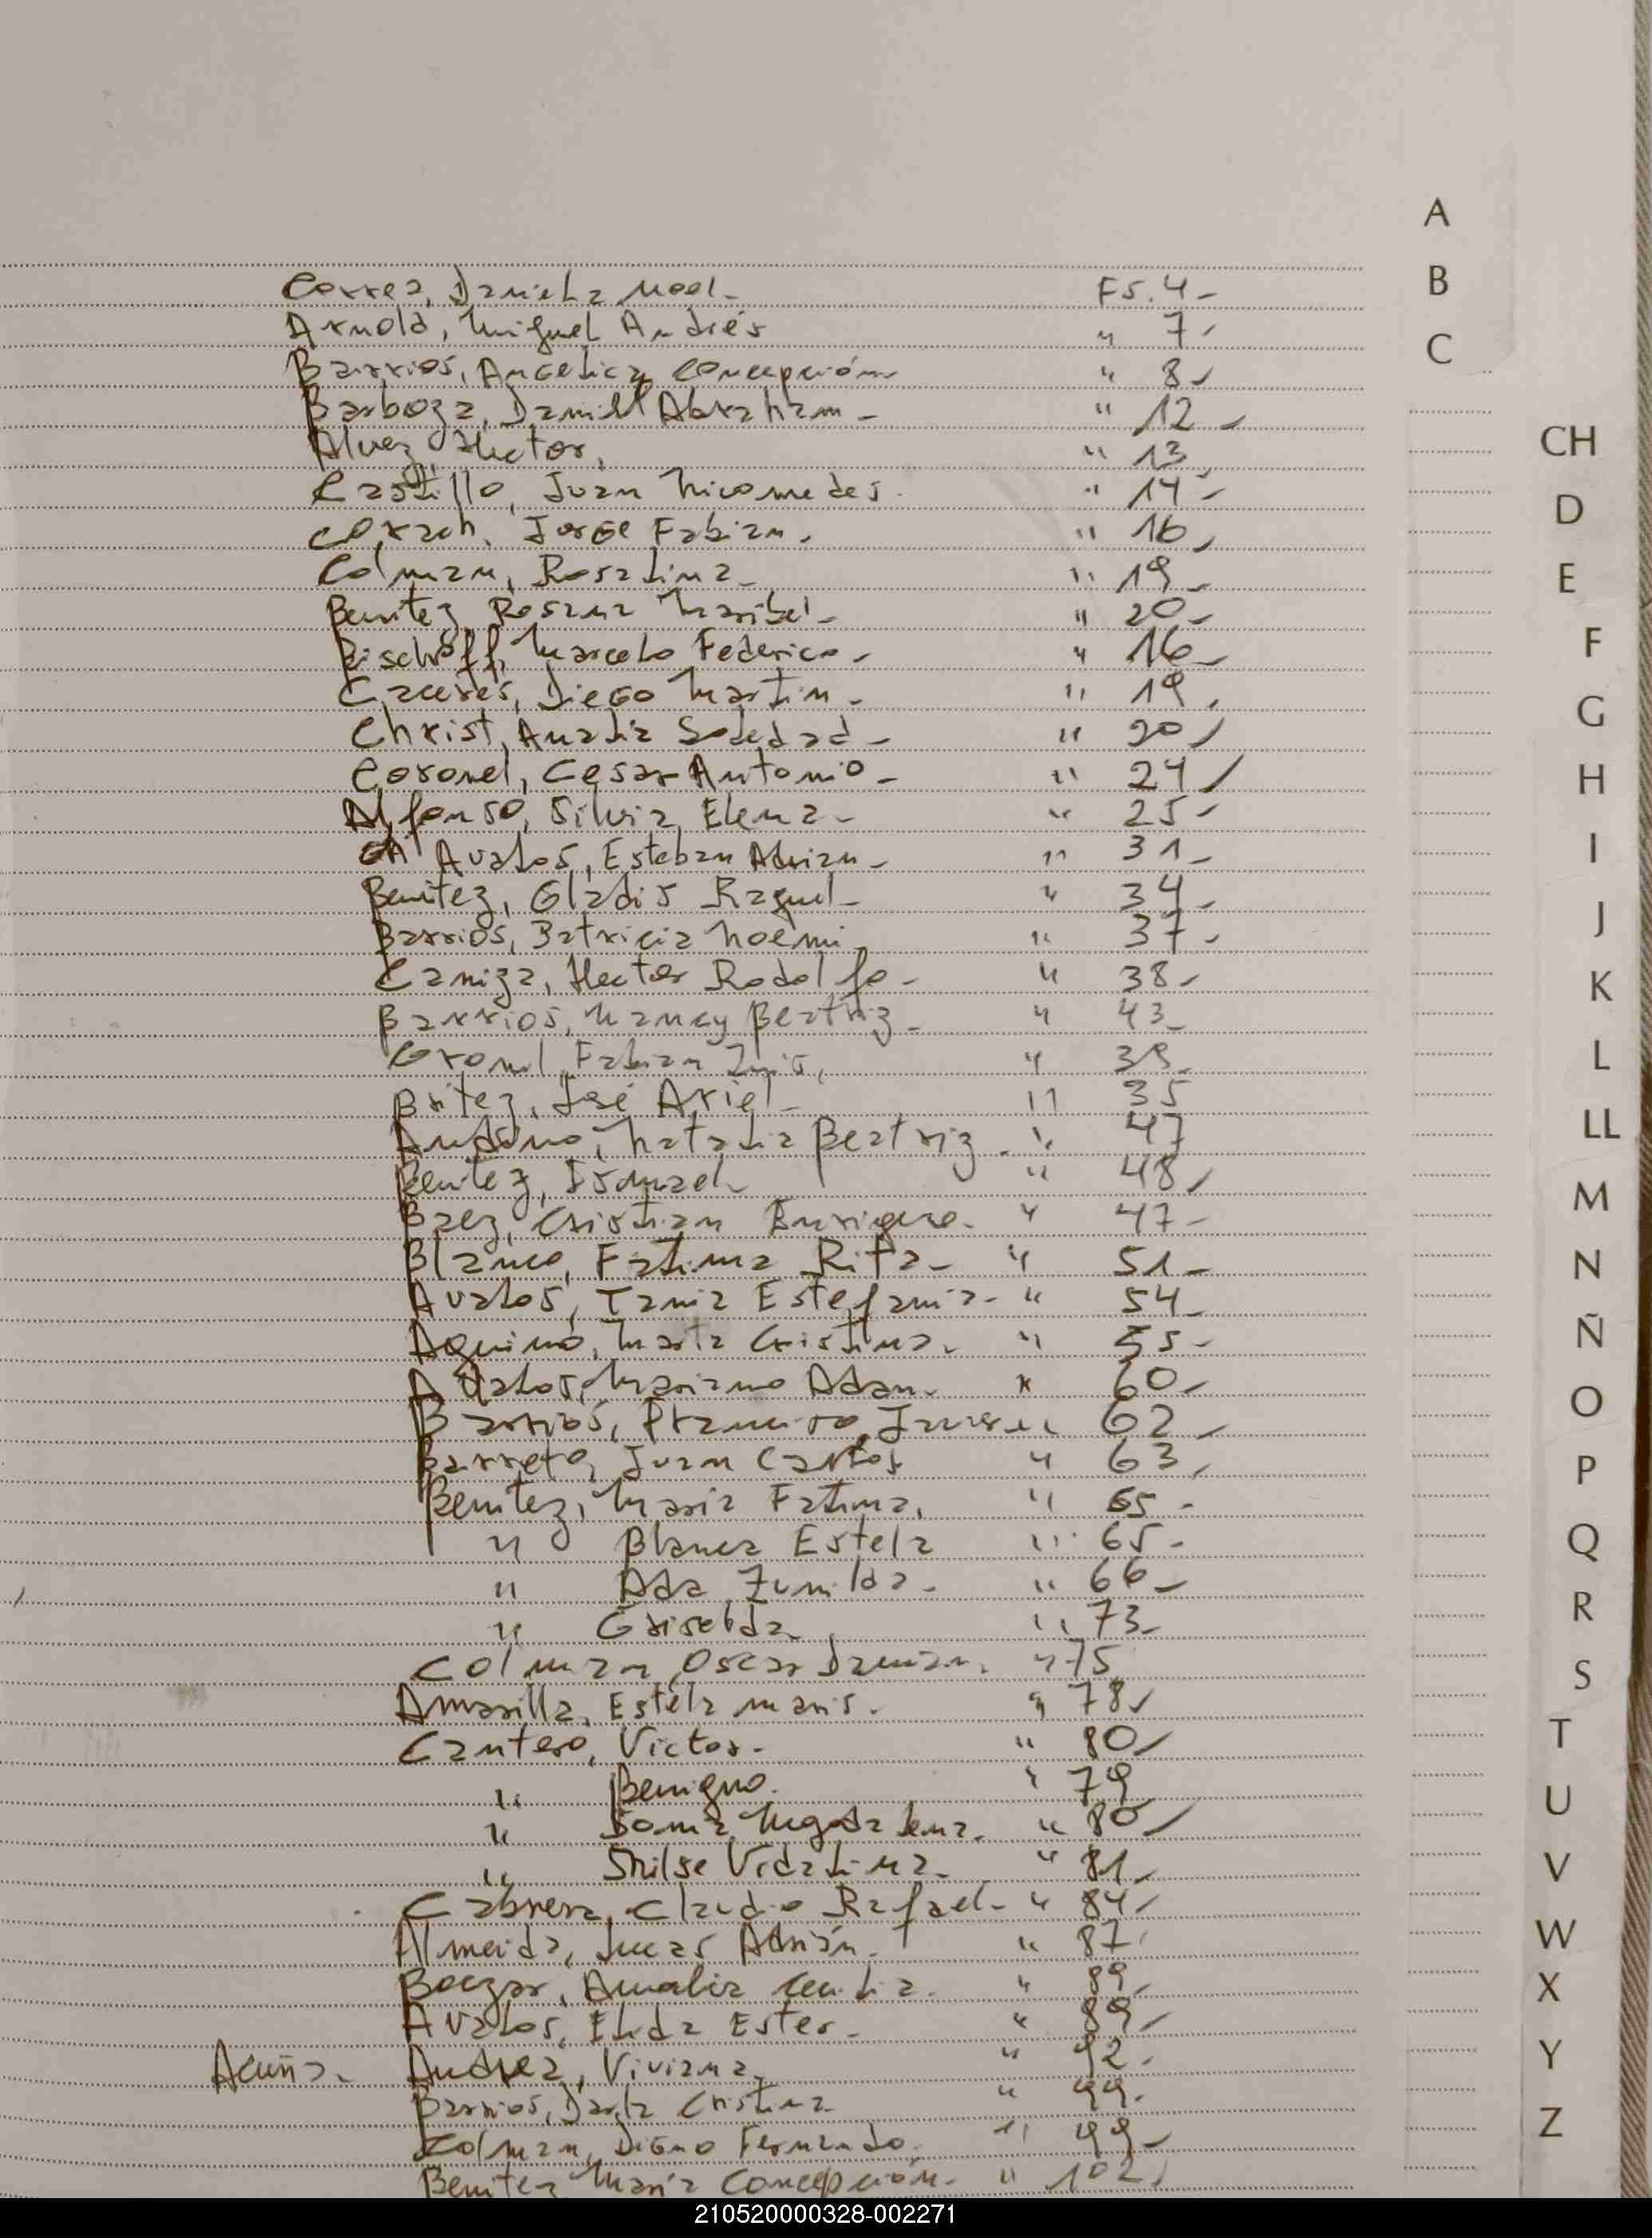 A
B
C
CH
D
E
F
G
H
I
J
K
L
LL
M
N
Ñ
O
P
Q
R
S
T
U
V
W
X
Y
Z
Correa, Daniela Noel. Fs. 4
Arnold, Miguel Andrés " 7
Barrios, Angelica Concepción " 8
Barboza, Daniel Abraham " 12
Alvez, Hector. " 13
Castillo, Juan Nicomedes. " 14
Corach, Jorge Fabian. " 16
Colman, Rosalina " 19
Benitez, Rosana Maribel " 20
Bischoff, Marcelo Federico " 16
Caceres, Diego Martin " 19
Christ, Analia Soledad " 20
Coronel, Cesar Antonio " 24
Alfonso, Silvia Elena " 25
Avalos, Esteban Adrian " 31
Benitez, Gladis Raquel " 34
Barrios, Patricia Noemi " 37
Caniza, Hector Rodolfo " 38
Barrios, Nancy Beatriz " 43
Coronel, Fabian Luis, " 39
Britez, José Ariel " 35
Natalia Beatriz. " 47
Benitez, Ismael " 48
Baez, Cristian " 47
Blanco, Fatima Rita " 51
Avalos, Tania Estefania " 54
Aquino, Marta Cristina. " 55
Avalos, Mariano Adan. " 60
Barrios, Javier " 62
Barreto, Juan Carlos " 63
Benitez, Maria Fatima, " 65
" Blanca Estela " 65
" Ada Zunilda " 66
" Griselda " 73
Colman, Oscar Damian. " 75
Amarilla, Estela Maris. " 78
Cantero, Victor. " 80
" Benigno. " 79
" Sonia Magdalena. " 80
" Vidalina " 81
Cabrera, Claudio Rafael " 84
Almeida, Lucas Adrián. " 87
Amalia " 89
Avalos, Elida Ester. " 89
Acuña. Andrea, Viviana " 92
Barrios, Cristina " 99
Colman, Digno Fernando. " 99
Benitez Maria Concepción. " 102
210520000328-002271